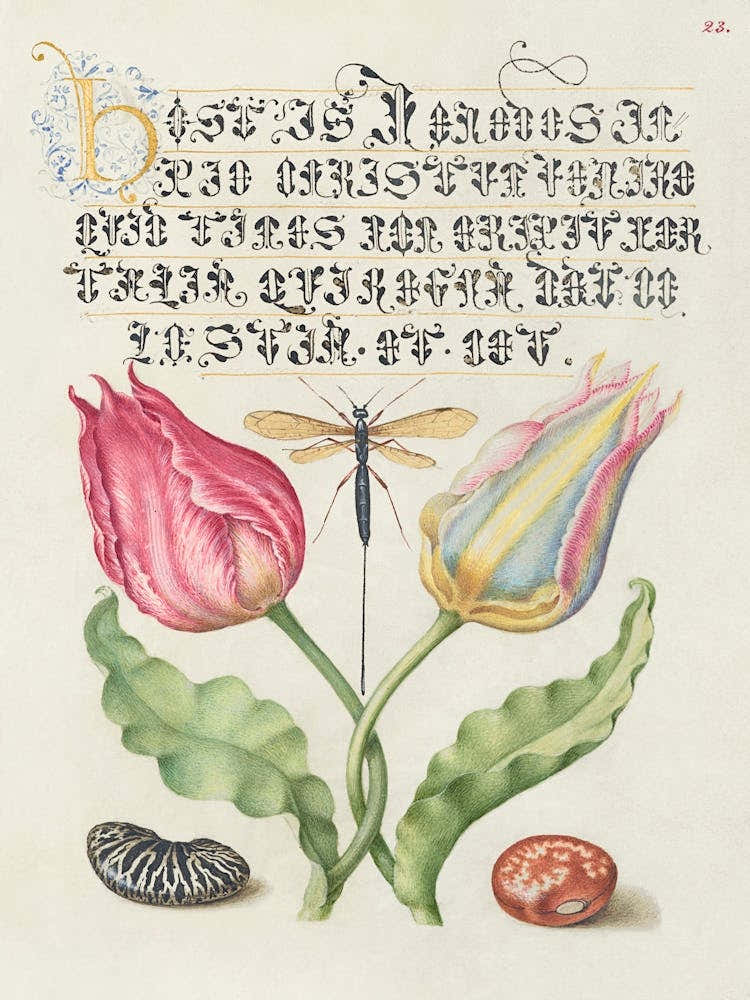 23.
HOSTIS HERODES IM
PIE CHRISTVM VENIRE
QVID TIMES NON ERIPIT MOR
TALIA, QVI REGNA DAT CE
LESTIA. ET. CET.